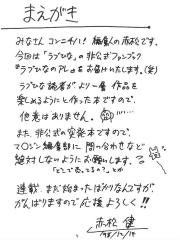 まえがき
みなさんコンニチハ! 編集人の赤松です。
今回は「ラブひな」の非公式ファンブック
『ラブひなのアレ』をお届けいたします。(笑)
ラブひな読者がより一層作品を
楽しめるようにと作った本ですので、
他意はありません。
また、非公式の突発本ですので、
マガジン編集部に問い合わせなど
絶対しないようにお願いします。
「どこで売ってるの?」とか
連載、まだ始まったばかりなんですが、
がんばりますので応援よろしく!!
赤松 健
'98/12/19